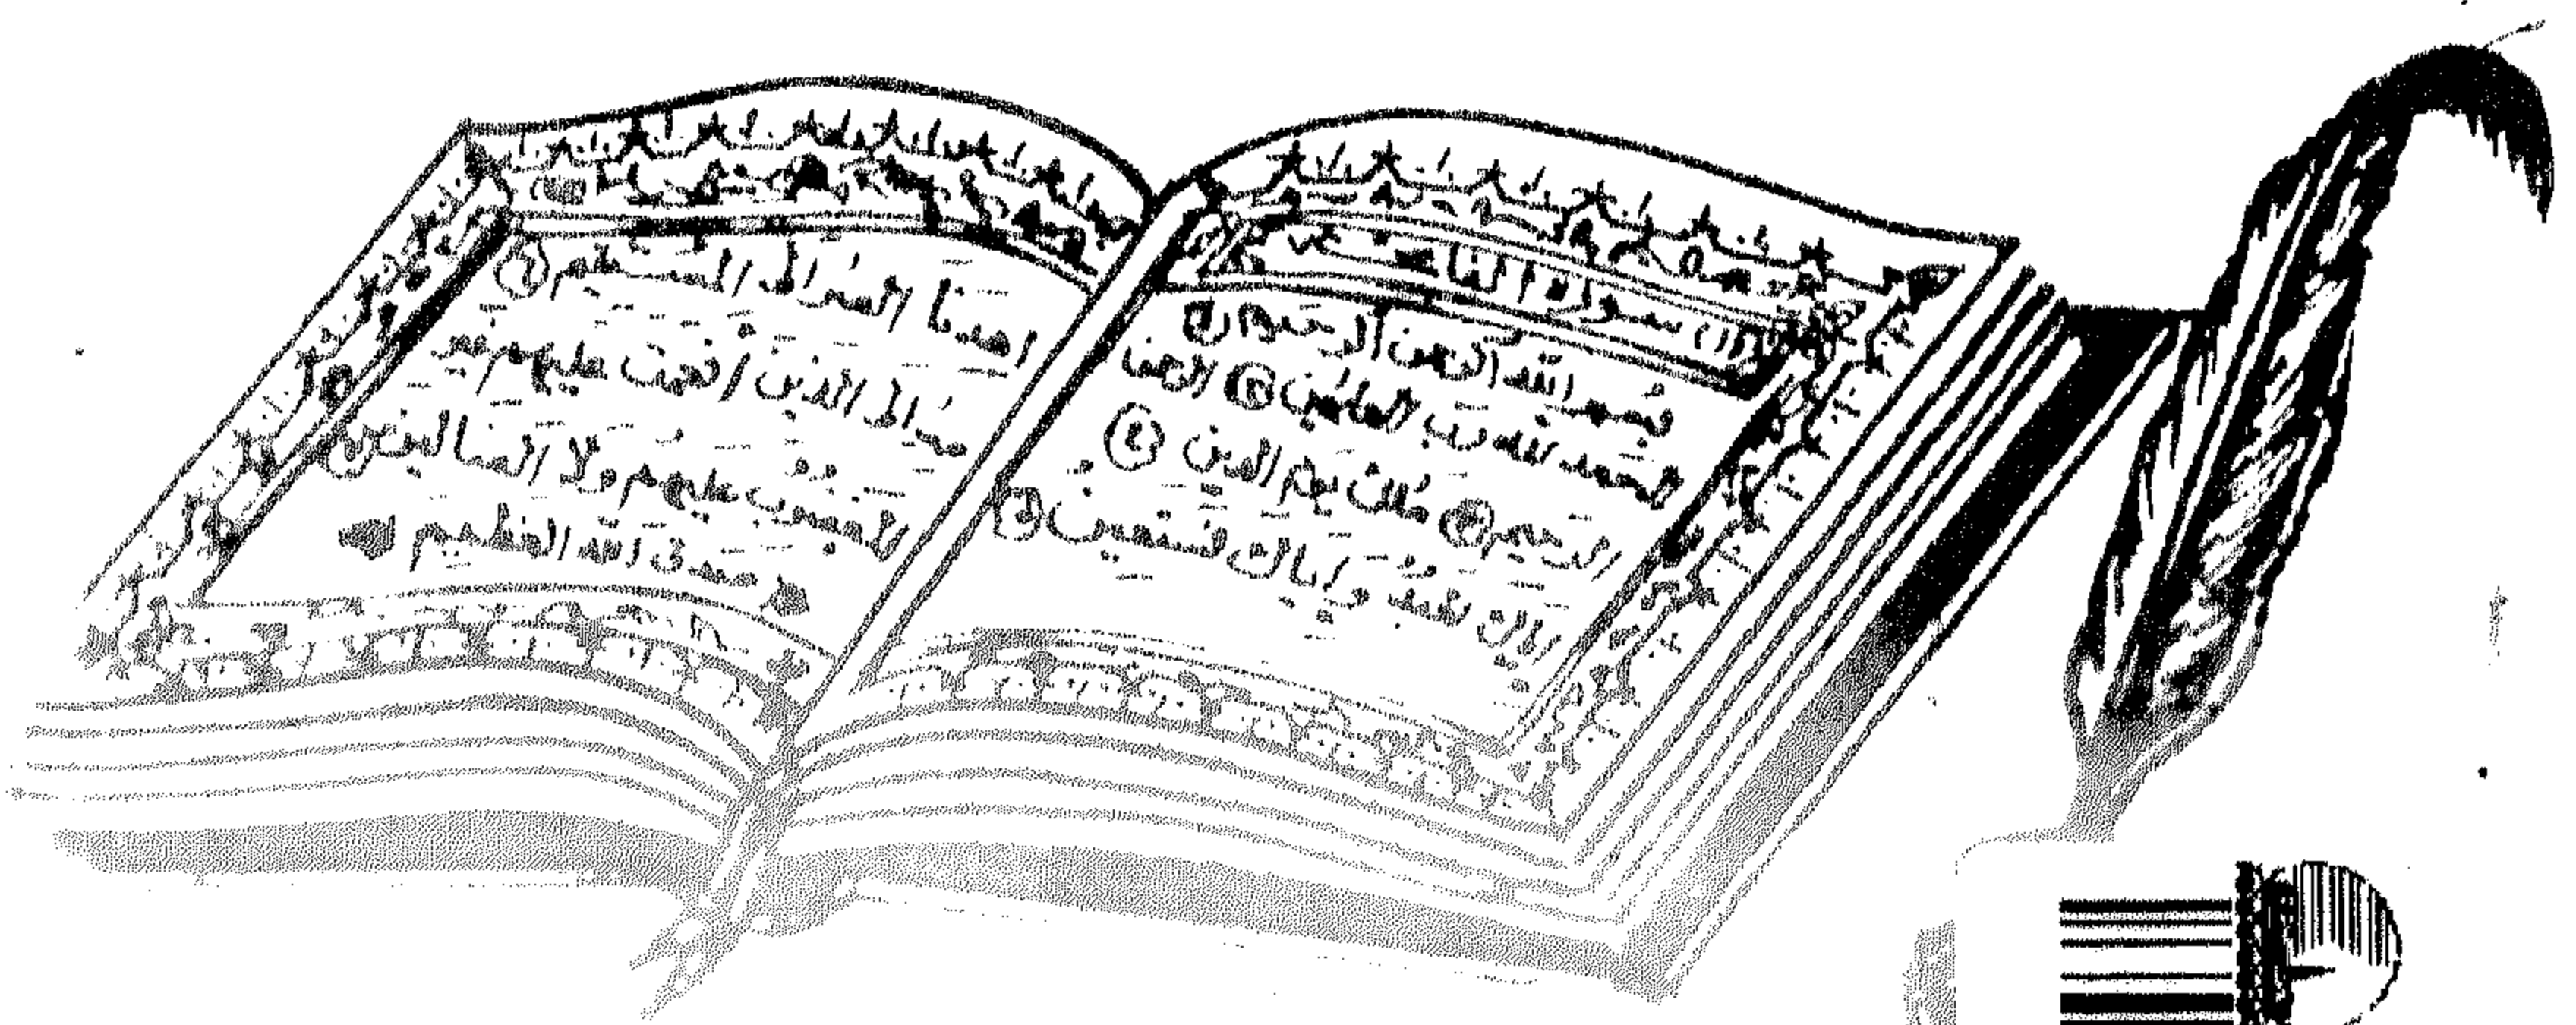 سورة الفاتحة
بسم الله الرحمن الرحيم (١)
الحمد لله رب العالمين (٢) الرحمن
الرحيم (٣) ملك يوم الدين (٤)
إياك نعبد وإياك نستعين (٥)
اهدنا الصراط المستقيم (٦)
صراط الذين أنعمت عليهم غير
المغضوب عليهم ولا الضالين
صدق الله العظيم